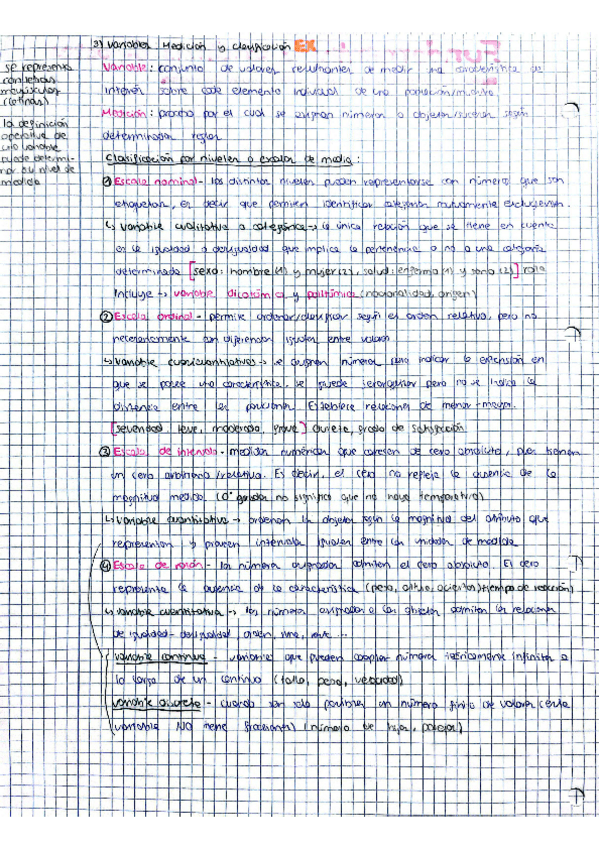 3) Variables Medición y clasificación EX
se representa
con letras
mayúsculas
(latinas)
la definición
operativa de
una variable
puede determi-
nar su nivel de
medida
Variable: conjunto de valores resultantes de medir una característica de
interés sobre cada elemento individual de una población/muestra.
Medición: proceso por el cual se asignan números a objetos/sucesos según
determinadas reglas.
Clasificación por niveles o escalas de medida:
① Escala nominal - los distintos niveles pueden representarse con números que son
etiquetas, es decir que permiten identificar categorías mutuamente excluyentes.
↳ variable cualitativa o categórica → la única relación que se tiene en cuenta
es la igualdad o desigualdad que implica la pertenencia o no a una categoría
determinada [sexo: hombre (1) y mujer (2), salud: enfermo (1) y sano (2)]
Incluye → variable dicotómica y politómica (nacionalidad, origen)
② Escala ordinal - permite ordenar/clasificar según el orden relativo, pero no
necesariamente con diferencias iguales entre valores
↳ variable cuasicuantitativa → se asignan números para indicar la extensión en
que se posee una característica. se puede jerarquizar pero no se indica la
distancia entre las posiciones. Establece relaciones de menor-mayor.
[severidad: leve, moderado, grave] dureza, grado de satisfacción
③ Escala de intervalo - medidas numéricas que carecen de cero absoluto, pues tienen
un cero arbitrario/relativo. Es decir, el cero no refleja la ausencia de la
magnitud medida (0 grados no significa que no haya temperatura)
↳ variable cuantitativa → ordenan los objetos según la magnitud del atributo que
representan y proveen intervalos iguales entre las unidades de medida
④ Escala de razón - los números asignados admiten el cero absoluto. El cero
representa la ausencia de la característica (peso, altura, aciertos) tiempo de reacción)
↳ variable cuantitativa → los números asignados a los objetos admiten las relaciones
de igualdad-desigualdad, orden, suma, resta ...
variable continua - variables que pueden adoptar números teóricamente infinitos a
lo largo de un continuo (talla, peso, velocidad)
variable discreta - cuando son solo posibles un número finito de valores (esta
variable NO tiene fracciones) (número de hijos, parejas)